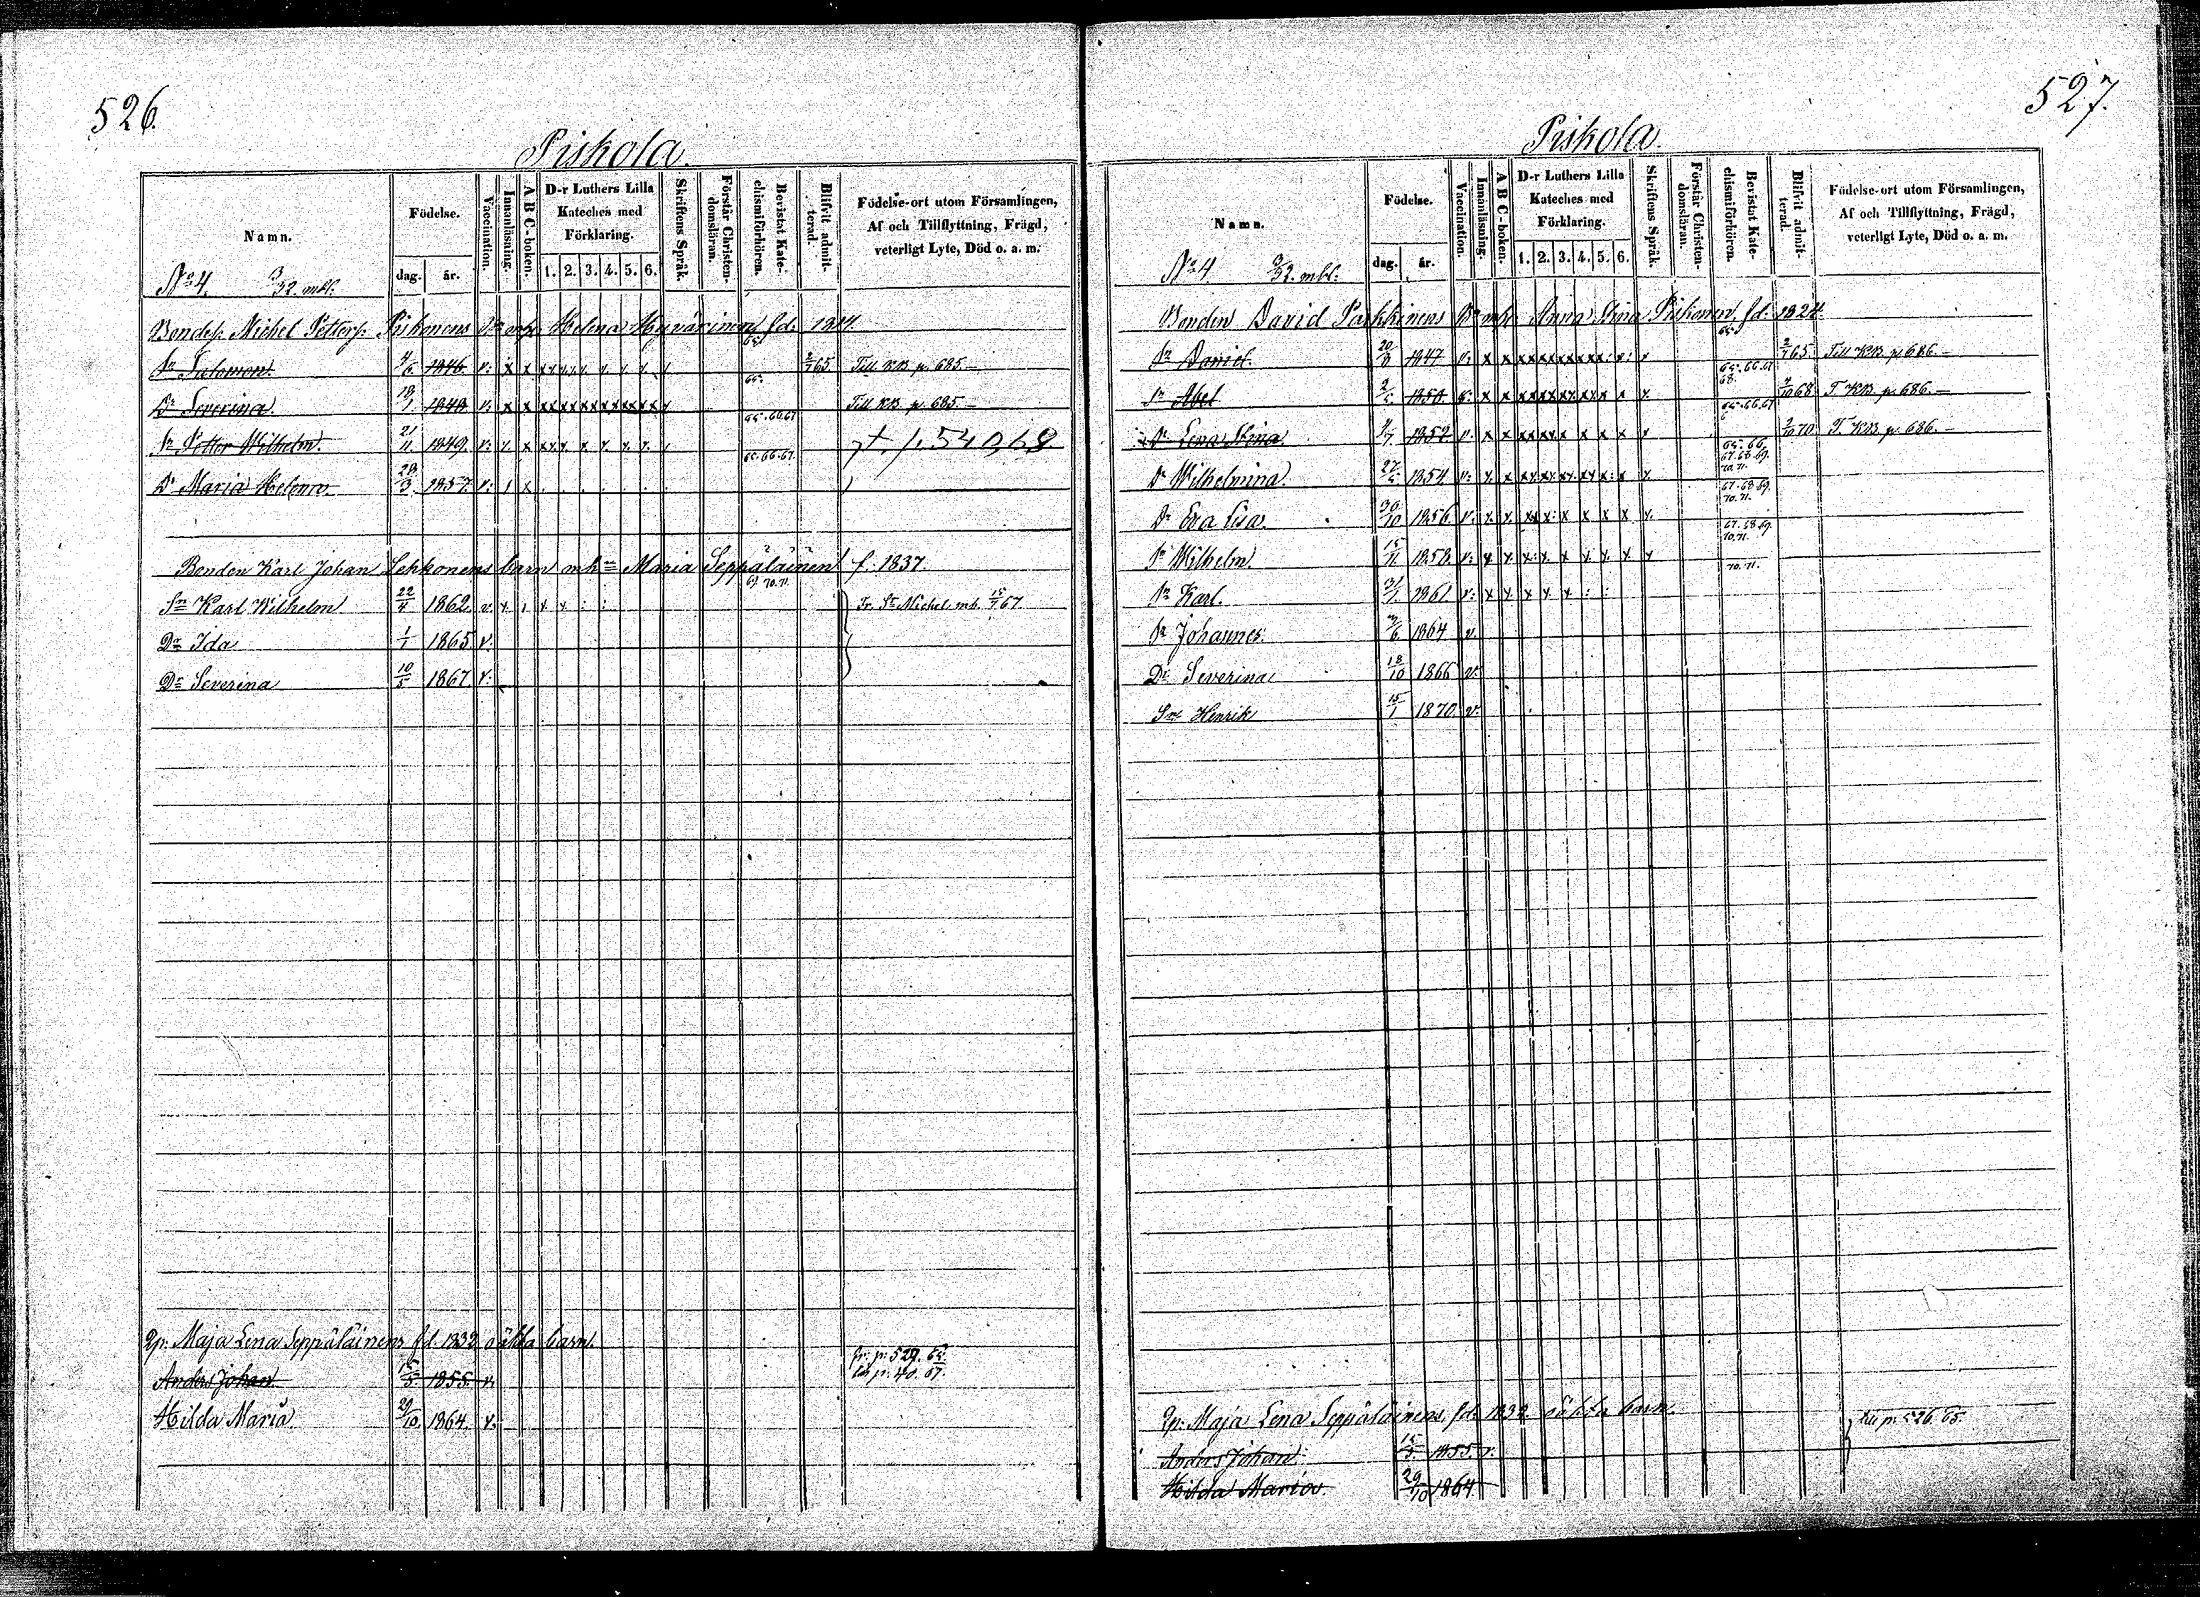 526.
Piskola.
Namn.
Födelse.
dag.
år.
Vaccination.
Innanläsning.
A B C-boken.
D-r Luthers Lilla
Kateches med
Förklaring.
1. 2. 3. 4. 5. 6.
Skriftens Språk.
Förstår Christen-
domsläran.
Bevistat Kate-
chismiförhören.
Blifvit admit-
terad.
Födelse-ort utom Församlingen,
Af och Tillflyttning, Frägd,
veterligt Lyte, Död o. a. m.
No 4. 9/32. mbl.
Michel Petters Piskonens Helena Hyvärinen fd: 1814.
Sn Salomon. 4/6 1846. v: 65. 2/7 65. Till KB. p. 685.
Dr Severina. 18/1 1848 v: x x 65. Till KB p. 685.
Sn Petter Wilhelm. 21/11 1849. v: 65. 66. 67
Dr Maria Helena. 28/3 1857. v: 65. 66. 67.
Bonden Karl Johan Lehkonens barn mh Maria Seppäläinen f. 1837.
Sn Karl Wilhelm 22/4 1862. v. 70. 71. Fr. St Michel mb. 15/7 67.
Dr Ida 1/1 1865 v.
Dr Severina 10/5 1867. v.
Maja Lena Seppäläinens fd. 1832 oäkta barn.
Anders Johan 15/5 1855. v. fr. p. 527. 65.
p. 40. 67.
Hilda Maria 29/10 1864. v.
527.
Piskola.
Namn.
Födelse.
dag.
år.
Vaccination.
Innanläsning.
A B C-boken.
D-r Luthers Lilla
Kateches med
Förklaring.
1. 2. 3. 4. 5. 6.
Skriftens Språk.
Förstår Christen-
domsläran.
Bevistat Kate-
chismiförhören.
Blifvit admit-
terad.
Födelse-ort utom Församlingen,
Af och Tillflyttning, Frägd,
veterligt Lyte, Död o. a. m.
No 4. 9/32. mbl.
Bonden David Parkkinens Anna Stina Piskonen fd: 1824.
Sn Daniel. 20/8 1847 v: x x 65. 2/7 65. Till KB. p. 686.
Sn Abel 1850. v: x x 65. 66. 67 68. 68. T. KB. p. 686.
Dr Lena Stina 1852 v. x x 65. 66. 67 70. T. KB. p. 686.
Dr Wilhelmina 1854 v: 65. 66. 67. 68. 69. 70. 71.
Dr Eva Lisa. 30/10 1856. v: 67. 68. 69. 70. 71.
Sn Wilhelm 15/11 1858. v: 67. 68. 69. 70. 71.
Sn Karl. 31/1 1861. v: 70. 71.
Sn Johannes. 1864 v.
Dr Severina 18/10 1866 v.
Sn Henrik 15/1 1870. v.
Maja Lena Seppäläinens, fd: 1832. oäkta barn.
Anders Johan. 15/5 1855. v. till p. 526. 65.
Hilda Maria 29/10 1864